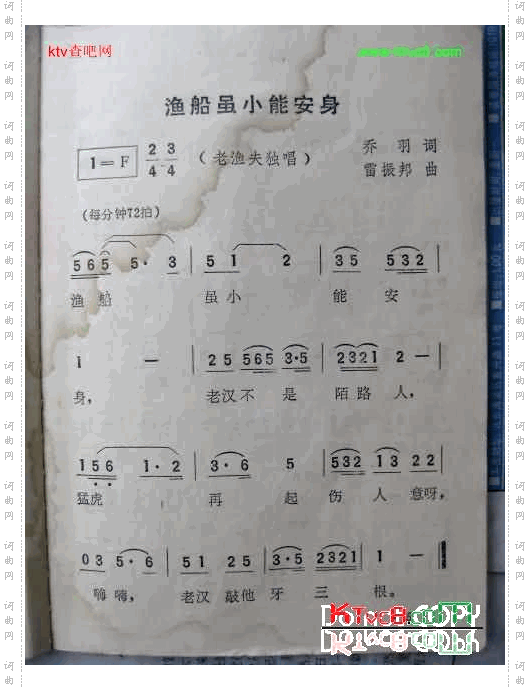 ktv查吧网
www.ktvc8.com
渔船虽小能安身
1=F 2/4 3/4 （老渔夫独唱） 乔羽词
雷振邦曲
（每分钟72拍）
5 6 5 5· 3 | 5 1 2 | 3 5 5 3 2 |
渔 船 虽小 能 安
1 — | 2 5 5 6 5 3·5 | 2 3 2 1 2 — |
身， 老汉不 是 陌路 人，
1 5 6 1·2 | 3·6 5 | 5 3 2 1 3 2 2 |
猛虎 再 起 伤 人 意呀，
0 3 5·6 | 5 1 2 5 | 3·5 2 3 2 1 | 1 —
嗨嗨， 老汉 敲他 牙 三 根。
KTvc8.COPY
词曲网